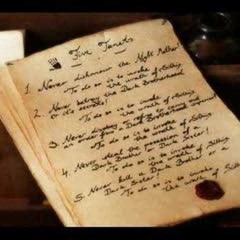 Five Tenets
1. Never dishonor the Night Mother.
To do so is to invoke the wrath of Sithis
2. Never betray the Dark Brotherhood
or its secrets.
To do so is to invoke
the wrath of Sithis
3. Never disobey or refuse to carry out
an order from a Dark Brotherhood superior
To do so is to invoke
the wrath of Sithis
4. Never steal the possessions of a
Dark Brother or Dark Sister.
To do so is to invoke
the wrath of Sithis
5. Never kill a Dark Brother or a
Dark Sister.
To do so is to invoke
the wrath of Sithis